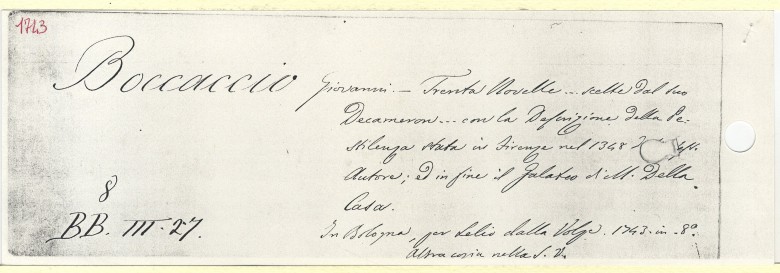 1743
Boccaccio Giovanni. — Trenta Novelle ... scelte dal suo
Decameron ... con la Descrizione della Pe-
stilenza stata in Firenze nel 1348
Autore; ed in fine il Galateo di M. Della
Casa.
8
BB. III. 27.
In Bologna, per Lelio dalla Volpe. 1743. in 8º.
Altra copia nella S. V.